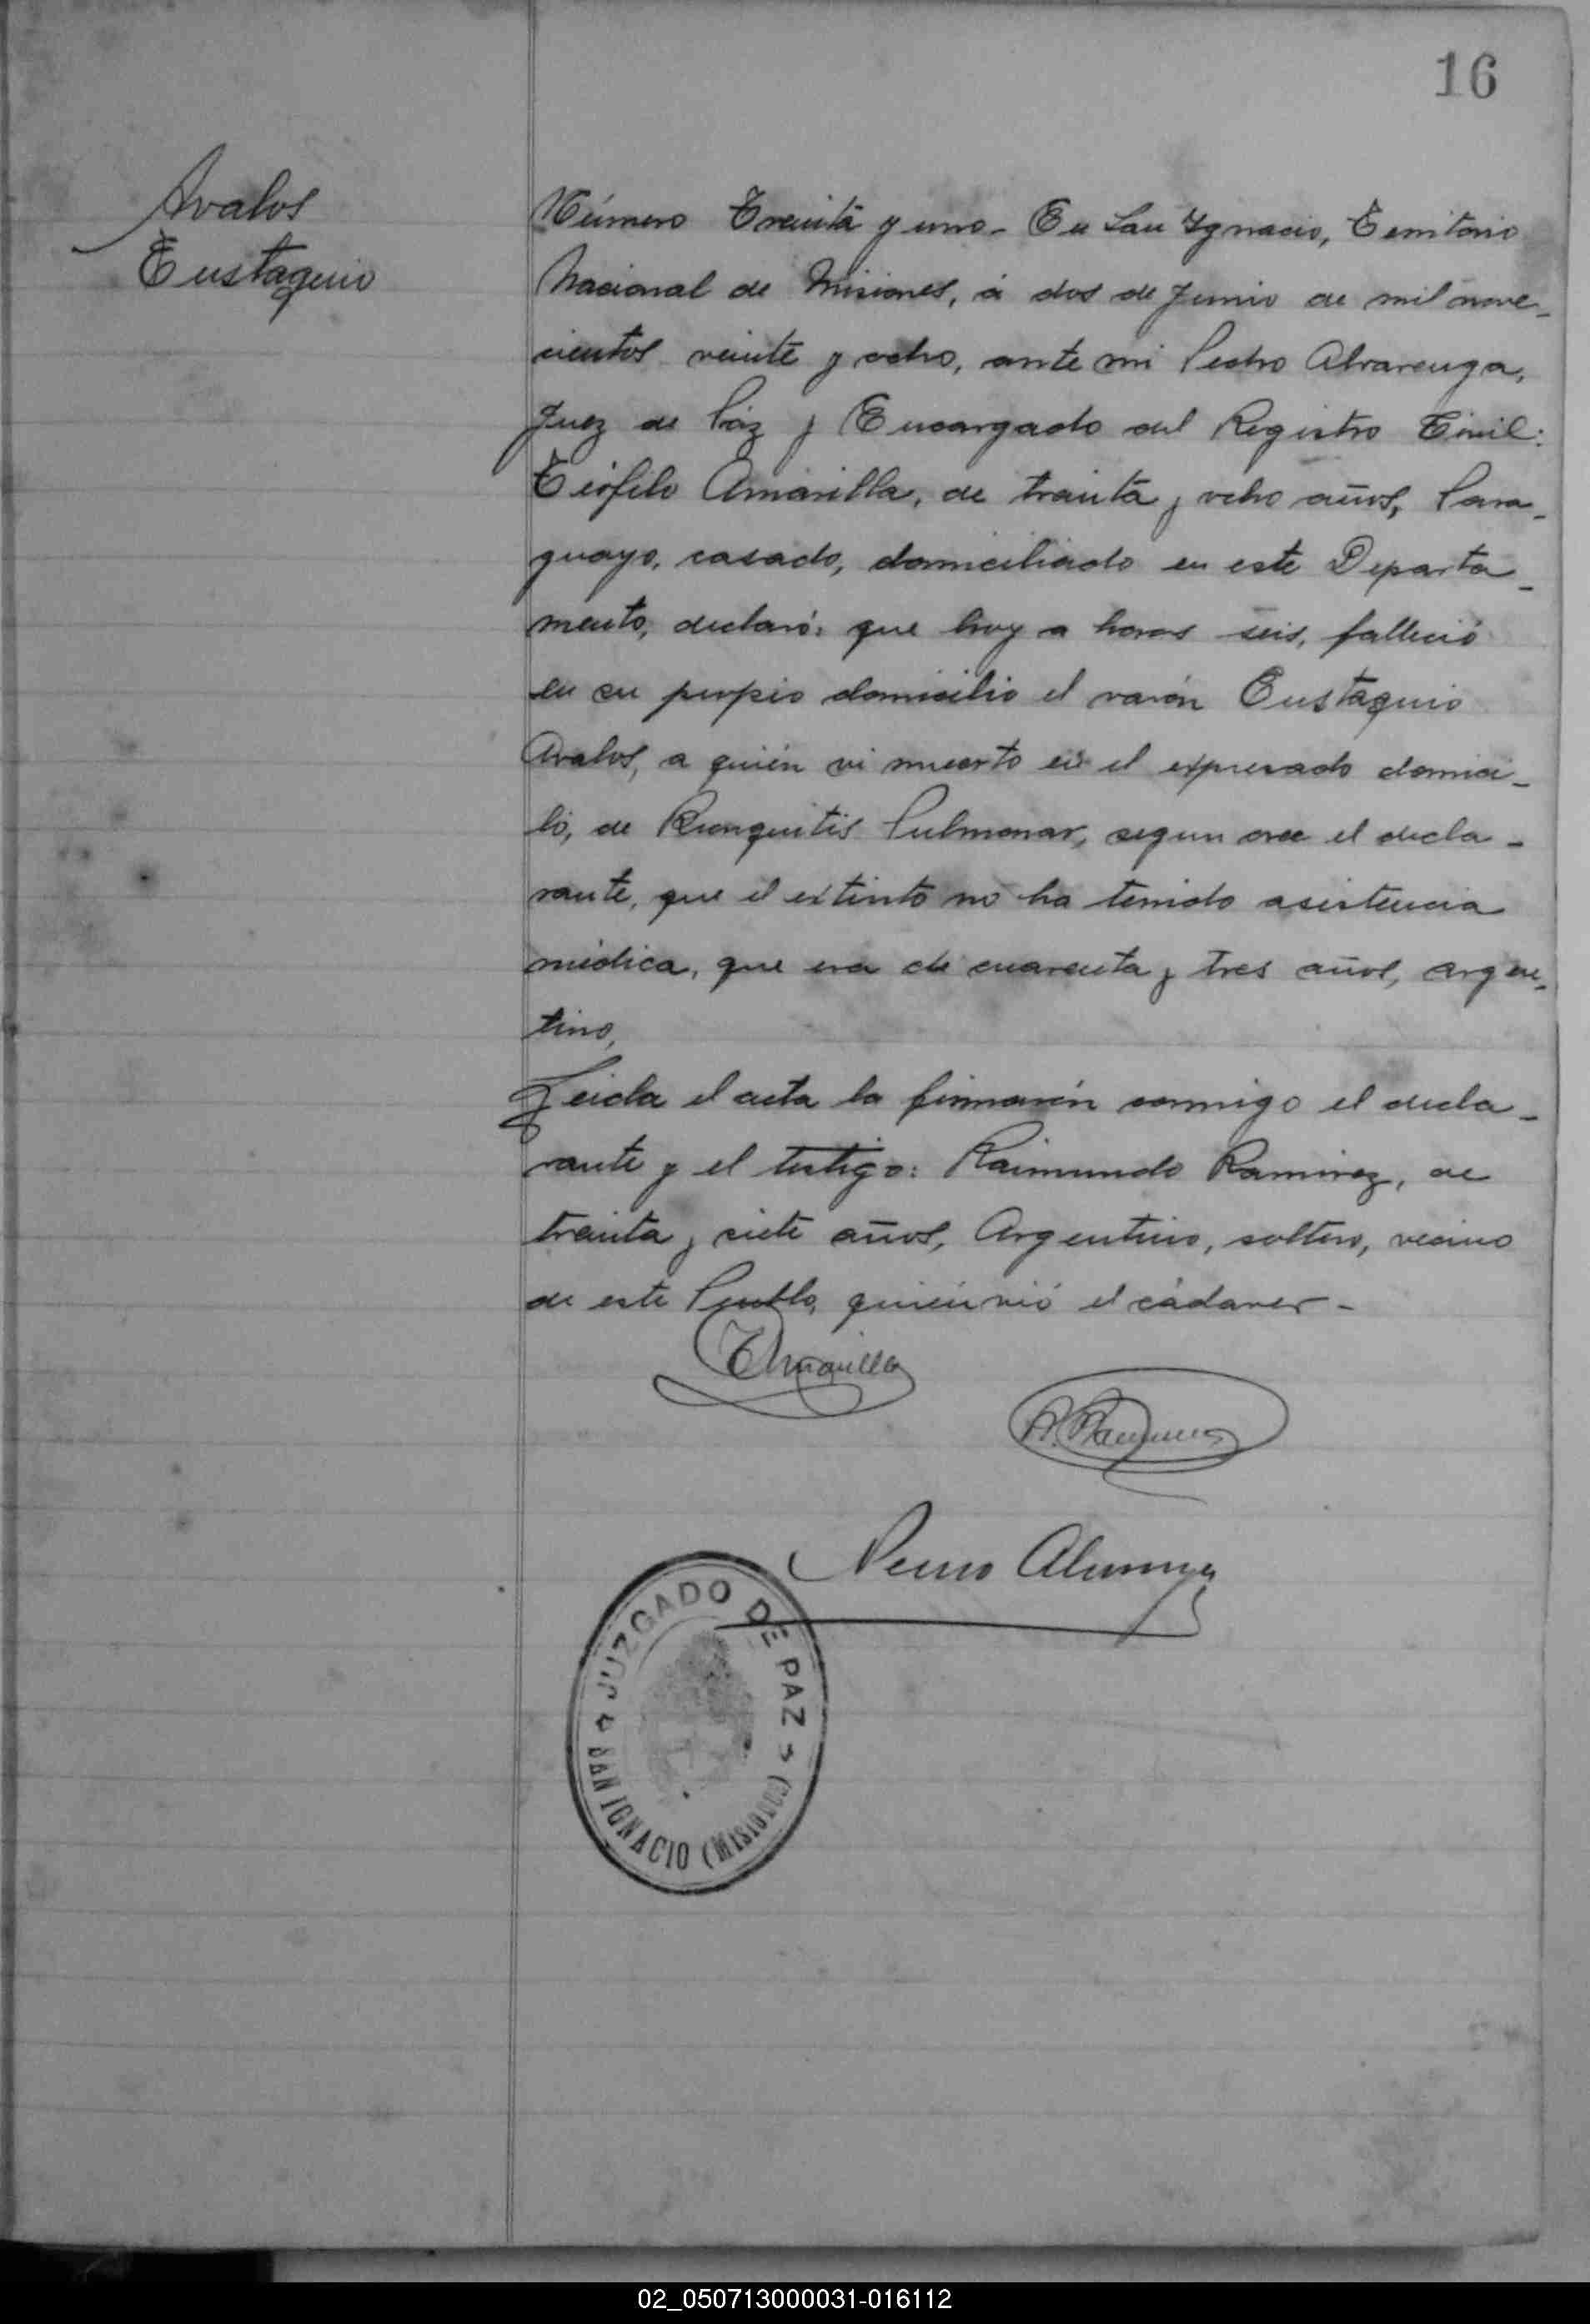 16
Avalos
Eustaquio
Número Treinta y uno - En San Ygnacio, Territorio
Nacional de Misiones, á dos de Junio de mil nove-
cientos veinte y ocho, ante mi Pedro Alvarenga,
Juez de Páz y Encargado del Registro Civil:
Teófilo Amarilla, de treinta y ocho años, Para-
guayo, casado, domiciliado en este Departa-
mento, declaró: que hoy a horas seis, falleció
en su propio domicilio el varón Eustaquio
Avalos, a quién vi muerto en el expresado domici-
lio, de Bronquitis Pulmonar, segun cree el decla-
rante, que el extinto no ha tenido asistencia
médica, que era de cuarenta y tres años, argen-
tino,
Leida el acta la firmarón conmigo el decla-
rante y el testigo: Raimundo Ramirez, de
treinta y siete años, Argentino, soltero, vecino
de este Pueblo, quién vió el cádaver -
T Amarilla
R. Ramirez
Pedro Alvarenga
JUZGADO DE PAZ
SAN IGNACIO (MISIONES)
02_050713000031-016112